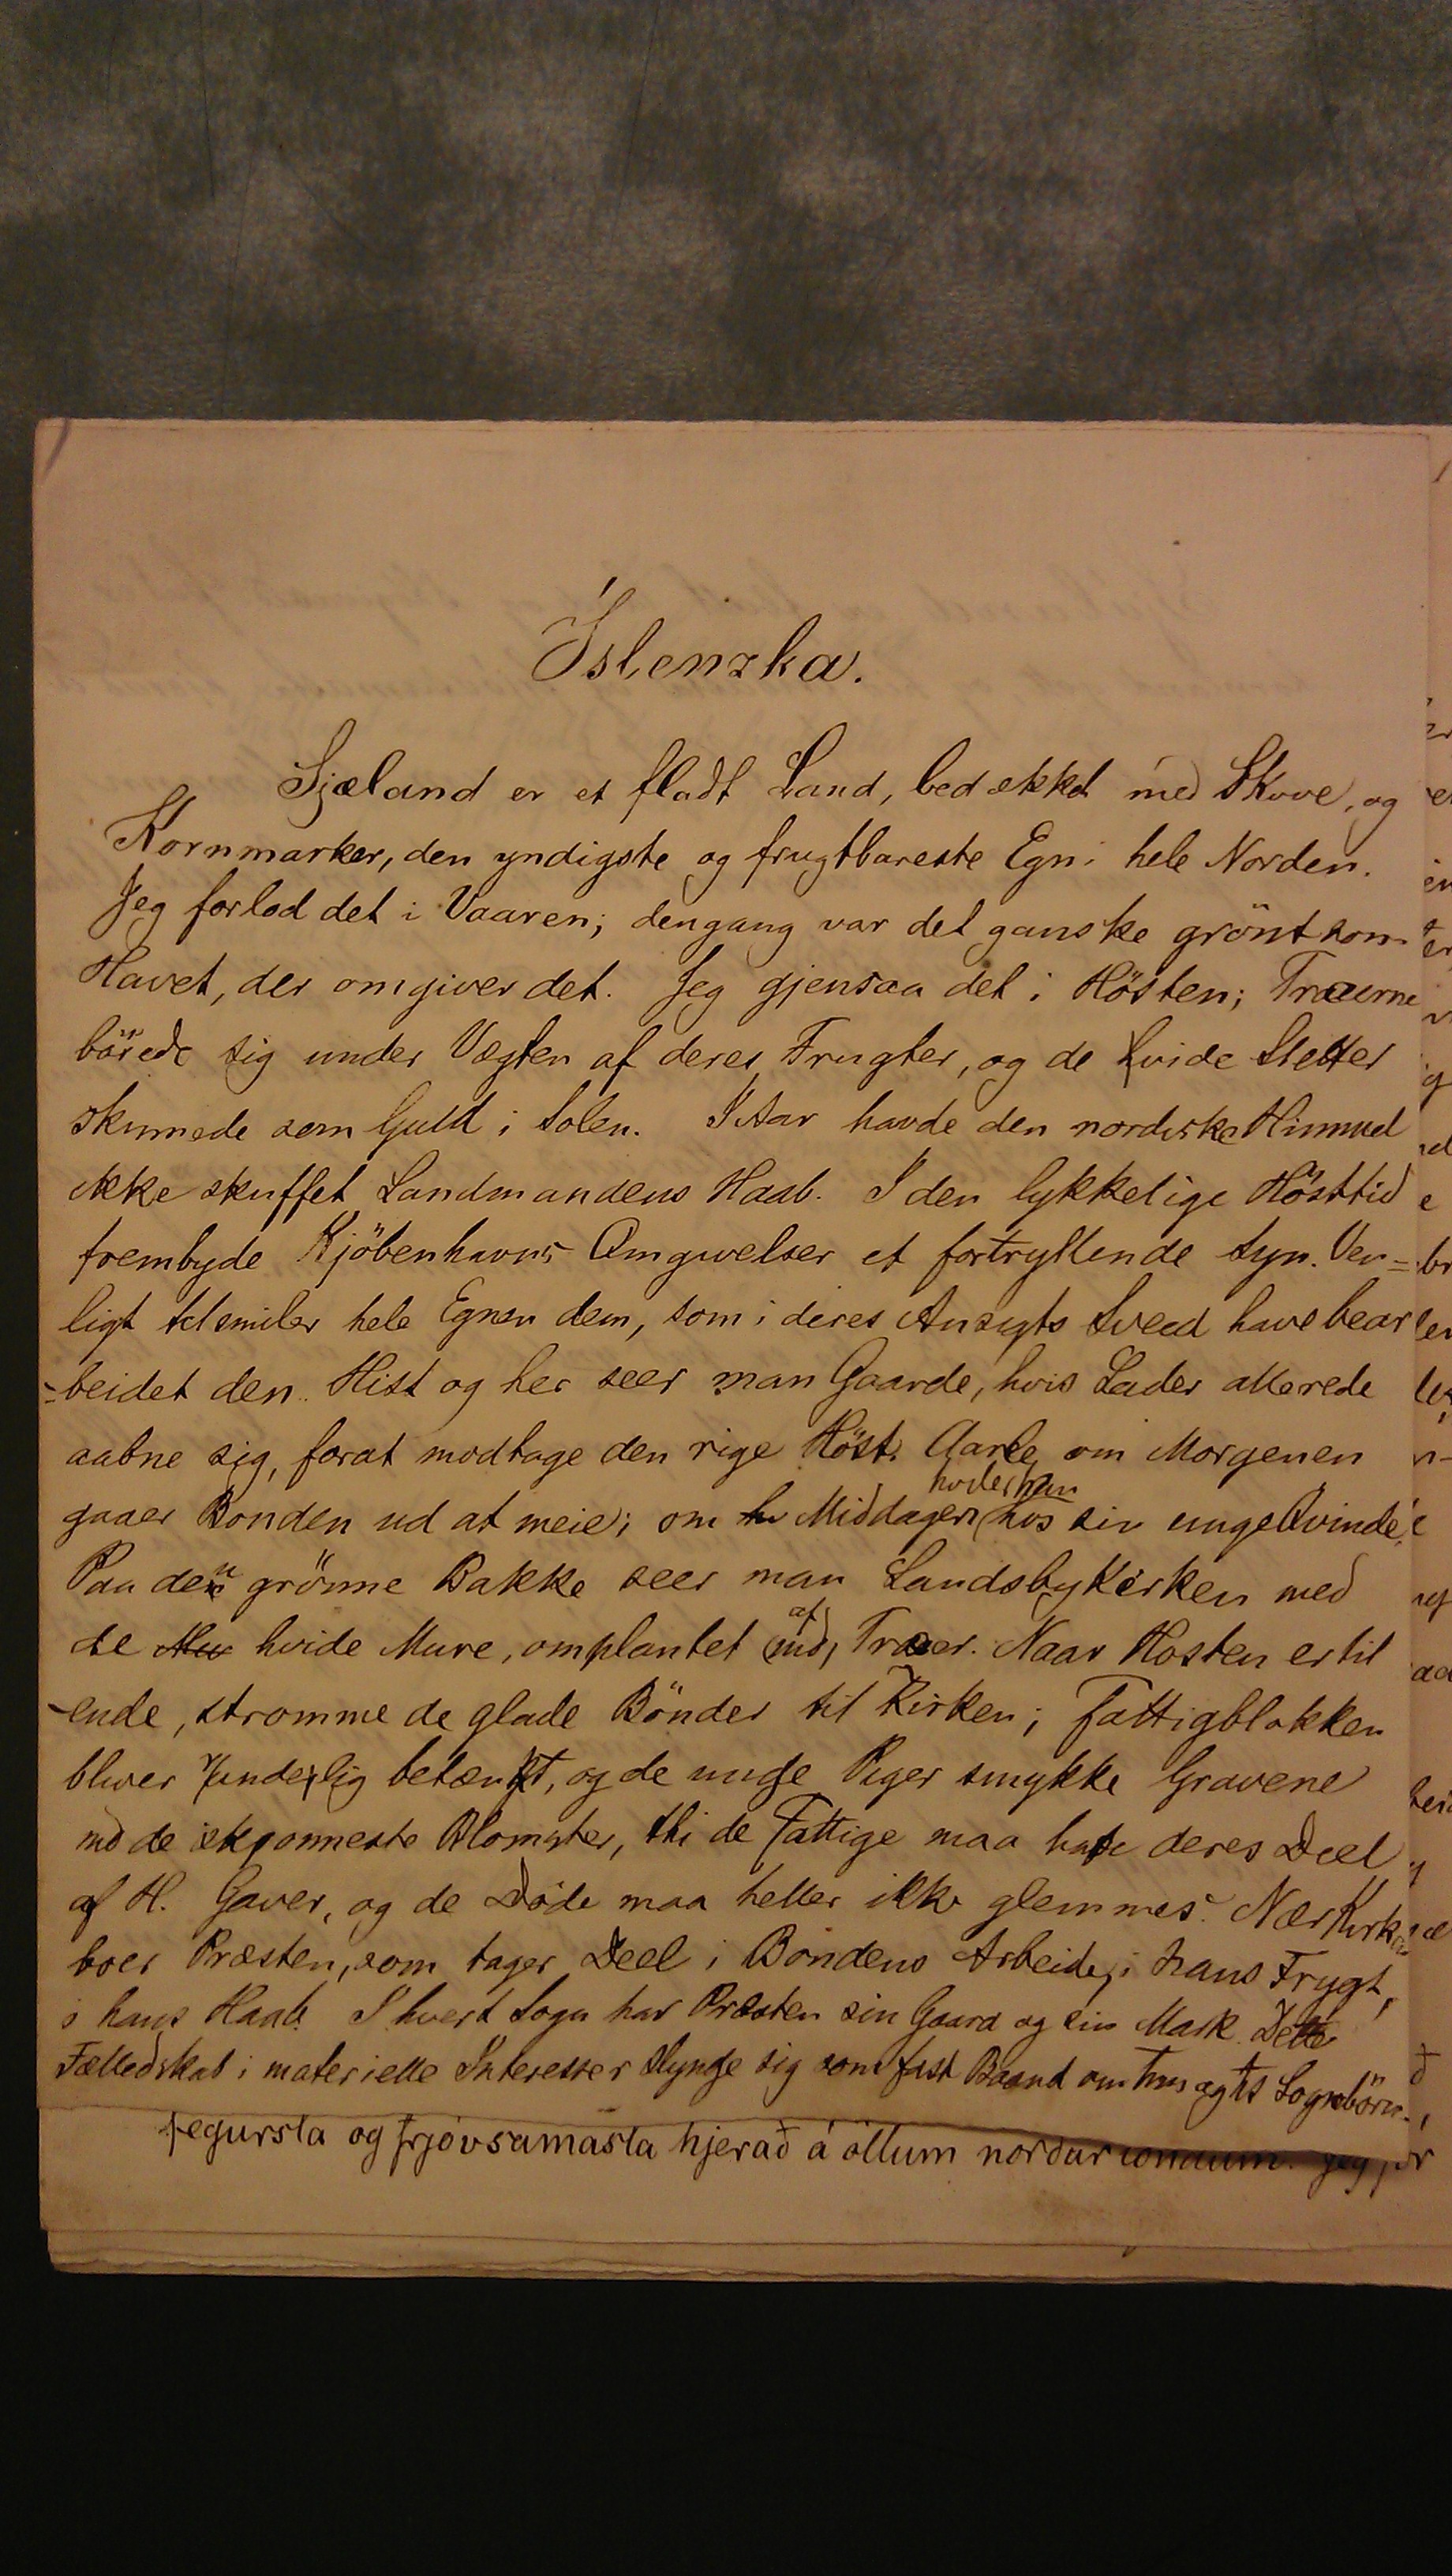 Íslenzka.
Sjæland er et fladt Land, bedækket med Skove, og
Kornmarker, den yndigste og frugtbareste Egn i hele Norden.
Jeg forlod det i Vaaren; dengang var det ganske grönt som
Havet, der omgiver det. Jeg gjensaa det i Hösten; Træerne
böiede sig under Vægten af deres Frugter, og de hvide Sletter
skinnede som Guld i Solen. I Aar havde den nordiske Himmel
ikke skuffet Landmandens Haab. I den lykkelige Hösttid
frembyde Kjöbenhavns Omgivelser et fortryllende Syn. Ven=
ligt tilsmiler hele Egnen dem, som i deres Ansigts Sveed have bear
=beidet den. Hist og her seer man Gaarde, hvis Lader allerede
aabne sig, forat modtage den rige Höst. Aarle om Morgenen
hviler han
gaaer Bonden ud at meie; om Middagen hos sin unge Qvinde.
Paa den grönne Bakke seer man Landsbykirken med
af
de hvide Mure, omplantet med Træer. Naar Hosten er til
-ende, stromme de glade Bönder til Kirken; Fattigblokken
bliver betænkt, og de unge Piger smykke Gravene
md de skjonneste Blomster, thi de Fattige maa have deres Deel
af H. Gaver, og de Döde maa heller ikke glemmes. Nær Kirken
boer Præsten, som tager Deel i Bondens Arbeide, i hans Frygt,
i hans Haab. I hvert Sogn har Præsten sin Gaard og sin Mark. Dette
Fælledskab i materielle Interesser slynge sig som fast Baand om Sognebörn.
fegursta og frjóvsamasta hjerað á öllum norðurlöndum. Jeg